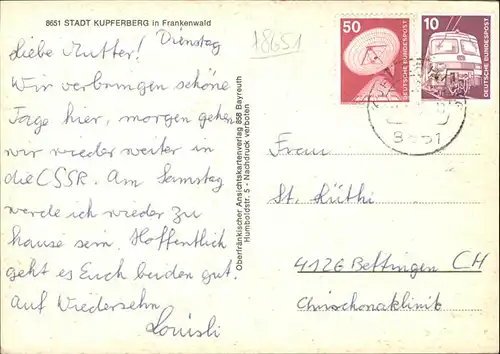 8651 STADT KUPFERBERG in Frankenwald
Dienstag
Liebe Mutter!
Wir verbringen schöne
Tage hier, morgen gehen
wir wieder weiter in
die CSSR. Am Samstag
werde ich wieder zu
hause sein. Hoffentlich
geht es Euch beiden gut.
Auf Wiedersehn
Louisli
18651
Oberfränkischer Ansichtskartenverlag 858 Bayreuth
Humboldtstr. 5 - Nachdruck verboten
50
DEUTSCHE BUNDESPOST
10
DEUTSCHE BUNDESPOST
8651
Frau
St. Lüthi
4126 Bettingen CH
Chrischonaklinik